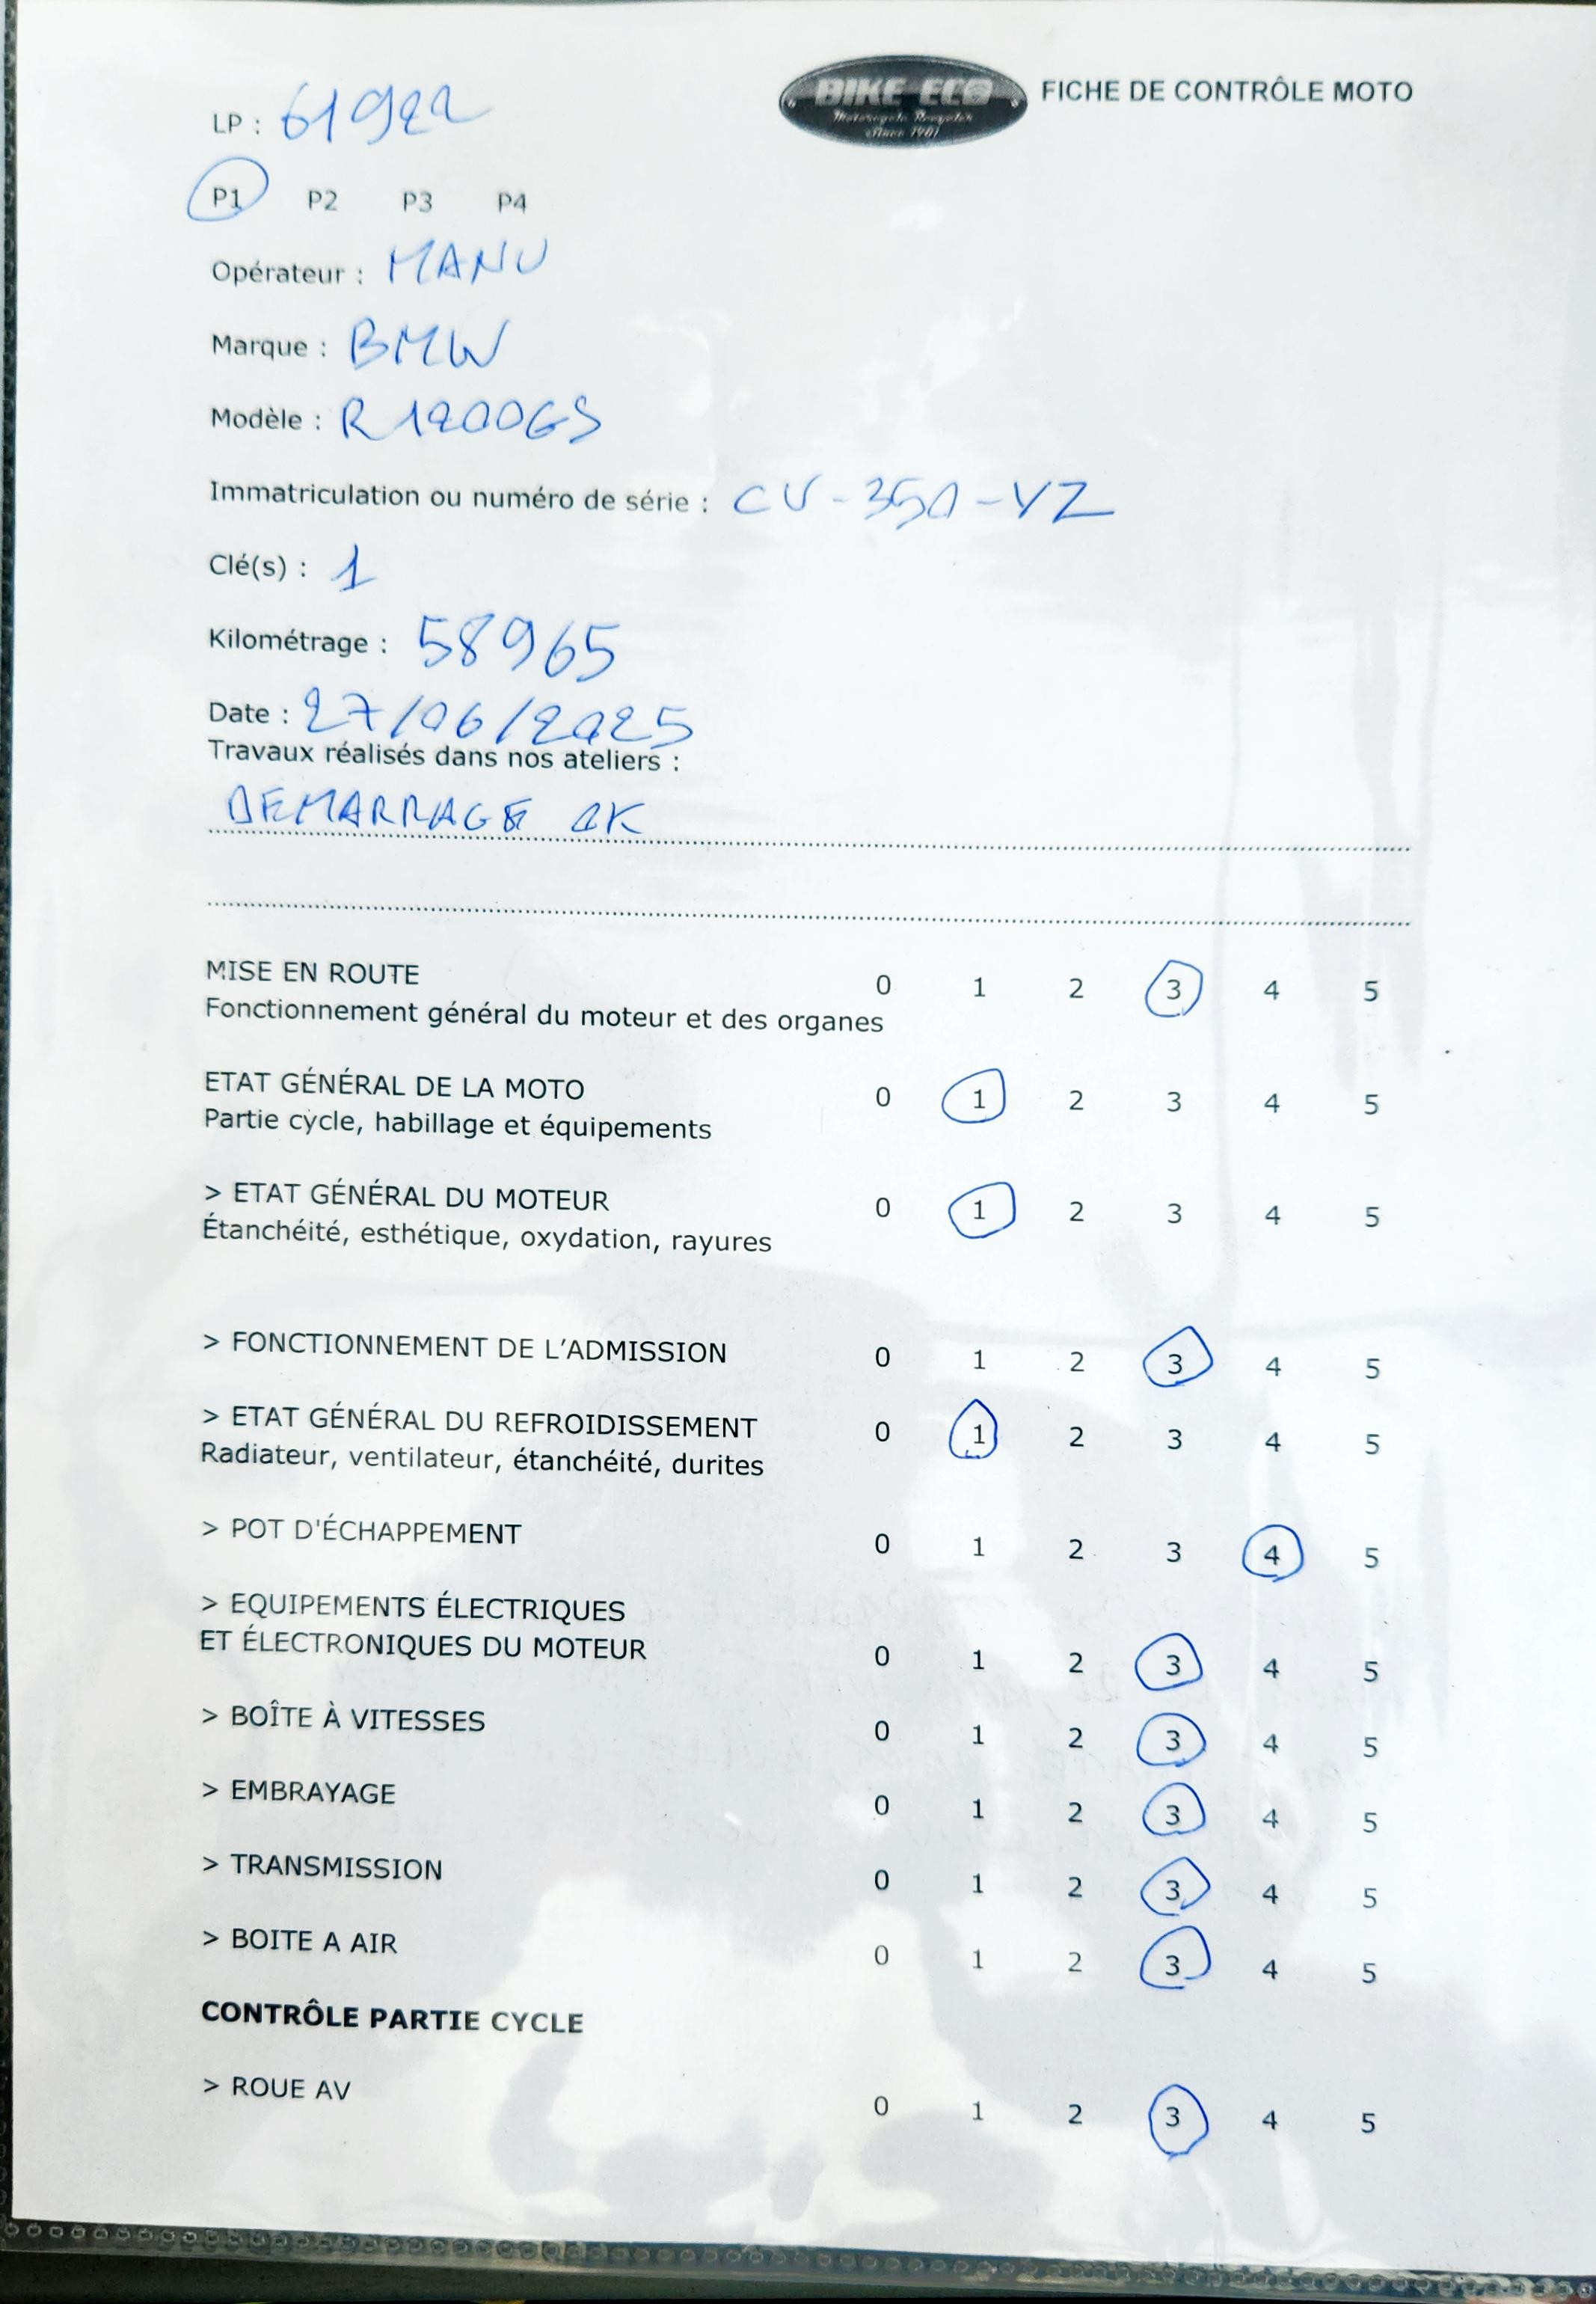 BIKE ECO
Motorcycle Recycler
Since 1961
FICHE DE CONTRÔLE MOTO
LP : 61922
P1 P2 P3 P4
Opérateur : MANU
Marque : BMW
Modèle : R1200GS
Immatriculation ou numéro de série : CV-350-YZ
Clé(s) : 1
Kilométrage : 58965
Date : 27/06/2025
Travaux réalisés dans nos ateliers :
DEMARRAGE OK
MISE EN ROUTE 0 1 2 3 4 5
Fonctionnement général du moteur et des organes
ETAT GÉNÉRAL DE LA MOTO 0 1 2 3 4 5
Partie cycle, habillage et équipements
> ETAT GÉNÉRAL DU MOTEUR 0 1 2 3 4 5
Étanchéité, esthétique, oxydation, rayures
> FONCTIONNEMENT DE L'ADMISSION 0 1 2 3 4 5
> ETAT GÉNÉRAL DU REFROIDISSEMENT 0 1 2 3 4 5
Radiateur, ventilateur, étanchéité, durites
> POT D'ÉCHAPPEMENT 0 1 2 3 4 5
> EQUIPEMENTS ÉLECTRIQUES
ET ÉLECTRONIQUES DU MOTEUR 0 1 2 3 4 5
> BOÎTE À VITESSES 0 1 2 3 4 5
> EMBRAYAGE 0 1 2 3 4 5
> TRANSMISSION 0 1 2 3 4 5
> BOITE A AIR 0 1 2 3 4 5
CONTRÔLE PARTIE CYCLE
> ROUE AV 0 1 2 3 4 5